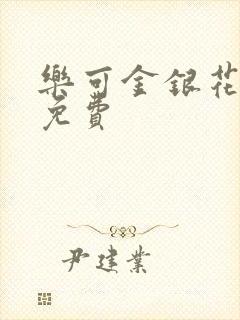 樂可金銀花
免費
尹建業